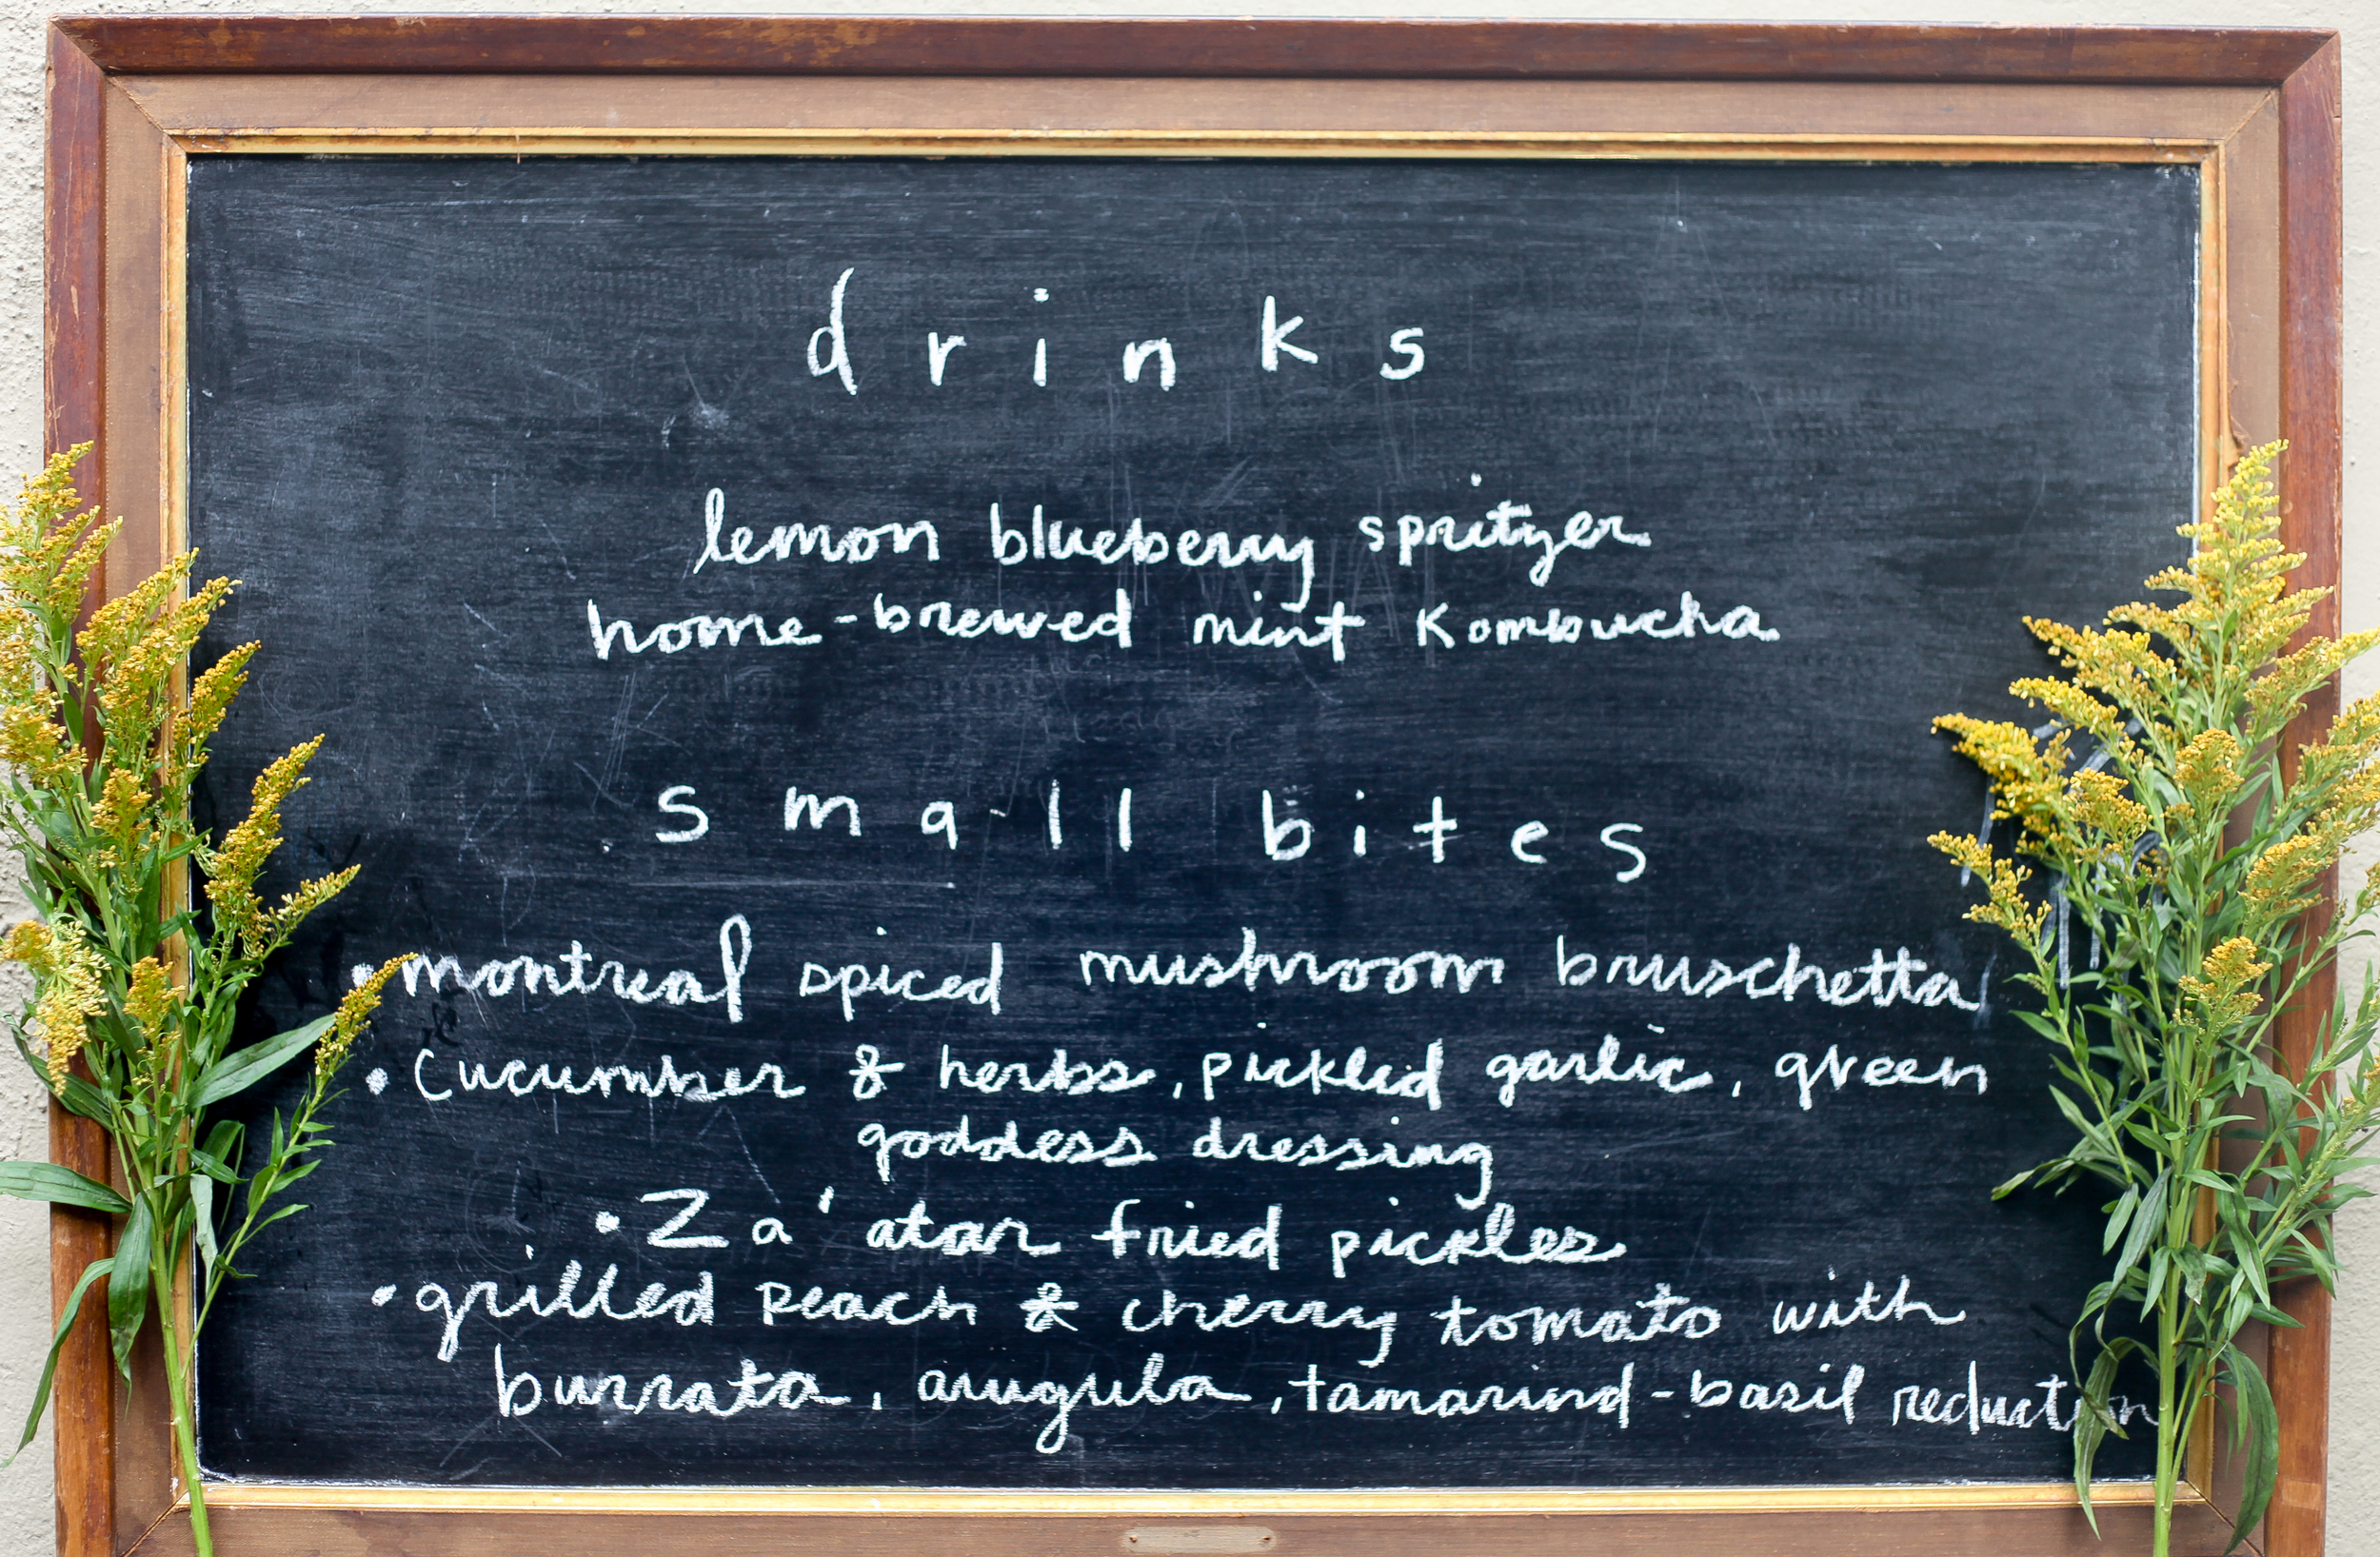 drinks
lemon blueberry spritzer
home-brewed mint Kombucha
small bites
• montreal spiced mushroom bruschetta
• cucumber & herbs, pickled garlic, green
goddess dressing
• Za'atar fried pickles
• grilled peach & cherry tomato with
burrata, arugula, tamarind-basil reduction